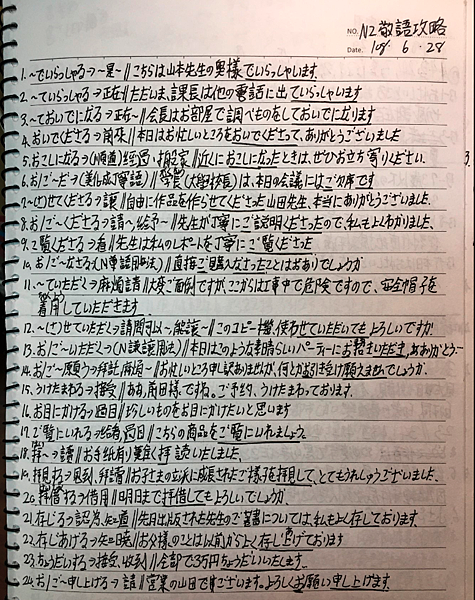 NO. N2敬語攻略
Date. 109. 6. 28
1. ~でいっしゃる→~是~∥こちらは山本先生の奥様でいらっしゃいます
2. ~ていらっしゃる→正在∥ただいま、課長は他の電話に出ていらっしゃいます
3. ~ておいでになる→正在~∥会長はお部屋で調べものをしておいでになります
4. おいでくださる→前來∥本日はお忙しいところをおいでくださって、ありがとうございました
5. おこしになる→(N順道)經過、拜訪∥近くにおこしになったときは、ぜひお立ち寄りください。
6. お/ご~だ→(美化成丁寧語)∥学長(大學校長)は、本日の会議にはご欠席です
7. ~(さ)せてくださる→讓∥自由に作品を作らせてくださった山田先生、本当にありがとうございました。
8. お/ご~くださる→請~、給予~∥先生が丁寧にご説明くださったので、私もよくわかりました。
9. ご覧くださる→看∥先生は私のレポートを丁寧にご覧くださった
10. お/ご~なさる→(N尊謙用法)∥直接ご購入なさったことはおありでしょうか
11. ~ていただく→麻煩請∥大変ご面倒ですが、ここからは工事中で危険ですので、安全帽子を
着用していただきます
12. ~(さ)せていただく→請問可以~、能讓~∥このコピー機、使わせていただいてもよろしいですか
13. お/ご~いただく→(N謙讓用法)∥本日はこのような素晴らしいパーティーにお招きいただき、ありがとう…
14. お/ご~願う→拜託、麻煩~∥お忙しいところ申し訳ありませんが、何とかお引き受け願えませんでしょうか。
15. うけたまわる→接受∥ああ、前田様ですね。ご予約、うけたまわっております。
16. お目にかける→過目∥珍しいものをお目にかけたいと思います
17. ご覧にいれる→給看、過目∥こちらの商品をご覧にいれましょう。
18. 拝~→讀∥お手紙有り難く拝読いたしました
19. 拝見する→見到、拜讀∥お子さまの立派に成長されたご様子を拝見して、とてもうれしゅうございました。
20. 拝借する→借用∥明日まで拝借してもよろしいでしょうか
21. 存じる→認為、知道∥先月出版された先生のご著書については、私もよく存じております。
22. 存じあげる→知曉∥お父様のことは以前からよく存じ上げております
23. ちょうだいする→接受、收到∥全部で3万円ちょうだいいたします。
24. お/ご~申し上げる→請∥営業の山田でございます。よろしくお願い申し上げます。